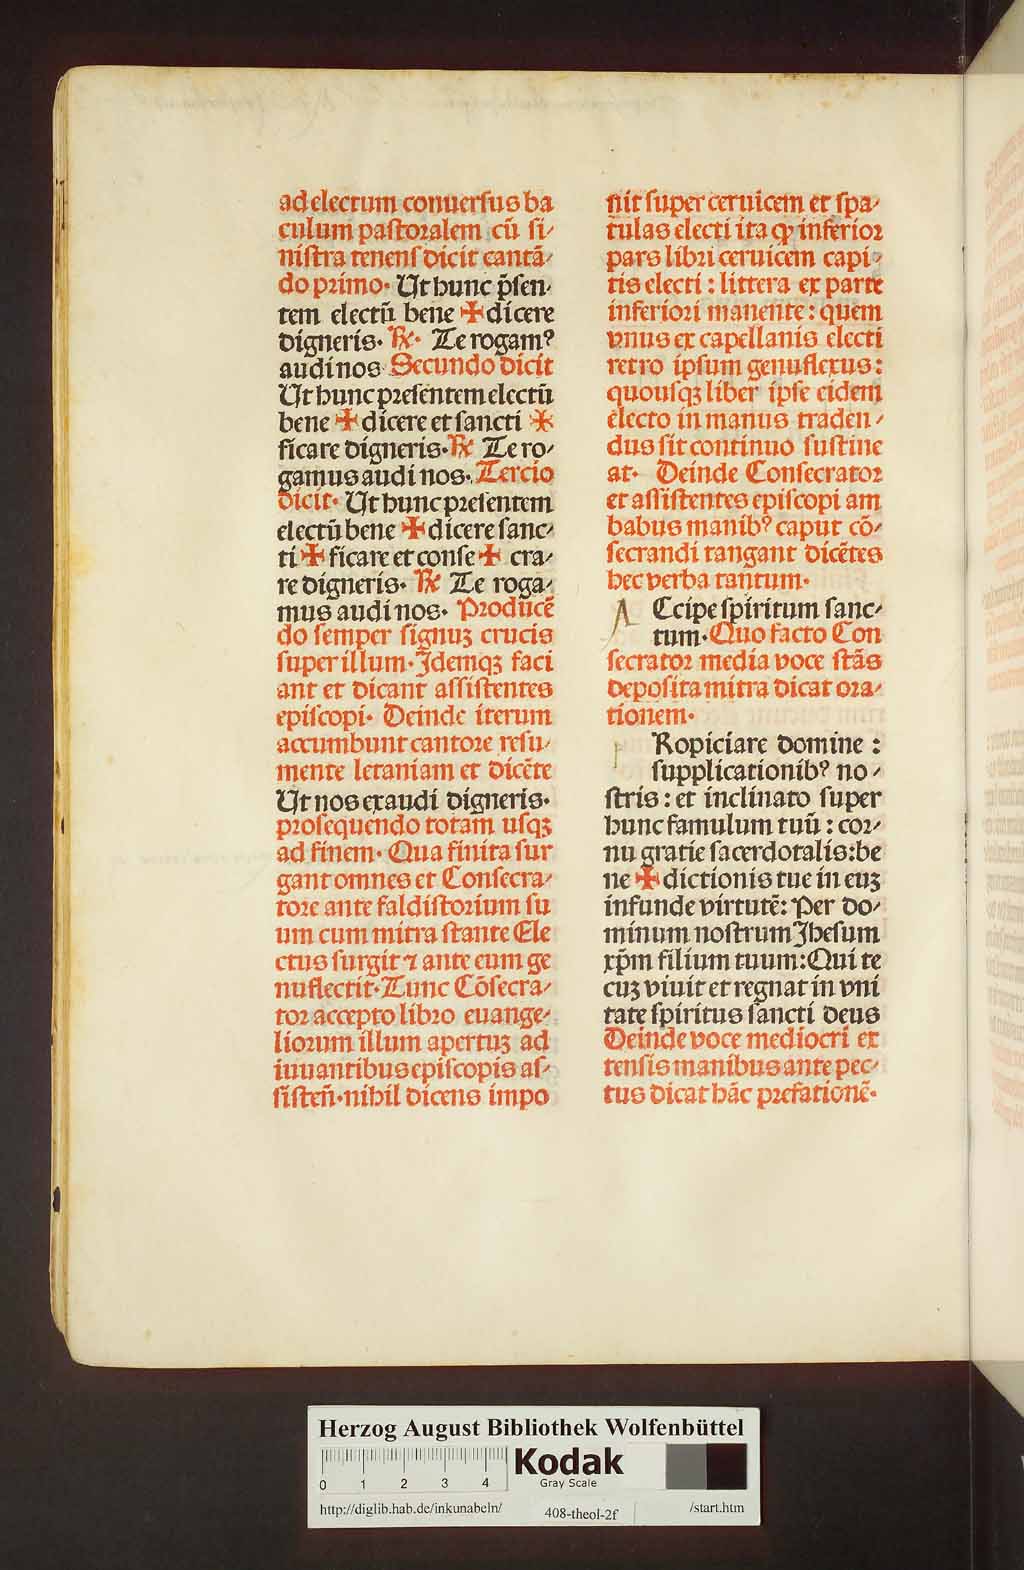 ad electum conuersus ba
culum pastoralem cū si⸗
nistra tenens dicit cantā⸗
do primo· Ut hunc p̄sen⸗
tem electū bene ✠ dicere
digneris· ℟· Te rogamꝰ
audi nos Secundo dicit
Ut hunc presentem electū
bene ✠ dicere et sancti ✠
ficare digneris· ℟ Te ro⸗
gamus audi nos· Tercio
dicit· Ut hunc presentem
electū bene ✠ dicere sanc⸗
ti ✠ ficare et conse ✠ cra⸗
re digneris· ℟ Te roga⸗
mus audi nos· Producē
do semper signuʒ crucis
super illum· Idemqʒ faci
ant et dicant assistentes
episcopi· Deinde iterum
accumbunt cantore resu⸗
mente letaniam et dicēte
Ut nos exaudi digneris·
prosequendo totam usqʒ
ad finem· Qua finita sur
gant omnes et Consecra⸗
tore ante faldistorium su
um cum mitra stante Ele
ctus surgit ⁊ ante eum ge
nuflectit· Tunc Cōsecra⸗
tor accepto libro euange⸗
liorum illum apertuʒ ad
iuuantibus episcopis as⸗
sisteñ· nihil dicens impo
nit super ceruicem et spa⸗
tulas electi ita ꝙ inferior
pars libri ceruicem capi⸗
tis electi : littera ex parte
inferiori manente : quem
vnus ex capellanis electi
retro ipsum genuflexus :
quousqʒ liber ipse eidem
electo in manus traden⸗
dus sit continuo sustine
at· Deinde Consecrator
et assistentes episcopi am
babus manibꝰ caput cō⸗
secrandi tangant dicētes
hec verba tantum·
A Ccipe spiritum sanc⸗
tum· Quo facto Con
secrator media voce stās
deposita mitra dicat ora⸗
tionem·
p Ropiciare domine :
supplicationibꝰ no⸗
stris : et inclinato super
hunc famulum tuū : cor⸗
nu gratie sacerdotalis : be
ne ✠ dictionis tue in euʒ
infunde virtutē : Per do⸗
minum nostrum Jhesum
xp̄m filium tuum : Qui te
cuʒ viuit et regnat in vni
tate spiritus sancti deus
Deinde voce mediocri ex
tensis manibus ante pec⸗
tus dicat hāc prefationē·
Herzog August Bibliothek Wolfenbüttel
0 1 2 3 4
Kodak
Gray Scale
http://diglib.hab.de/inkunabeln/ 408-theol-2f /start.htm